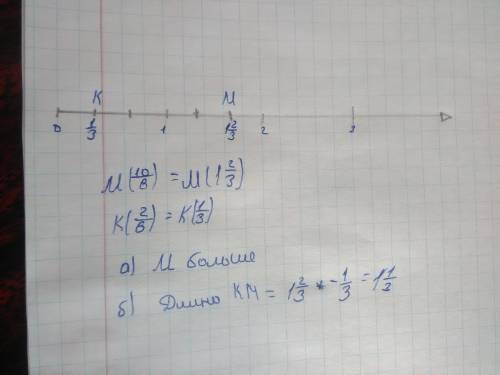 K M
0 1/3 1 1 2/3 2 3
M(10/6) = M(1 2/3)
K(2/6) = K(1/3)
а) М больше
б) Длина КМ = 1 2/3 - 1/3 = 1 1/3